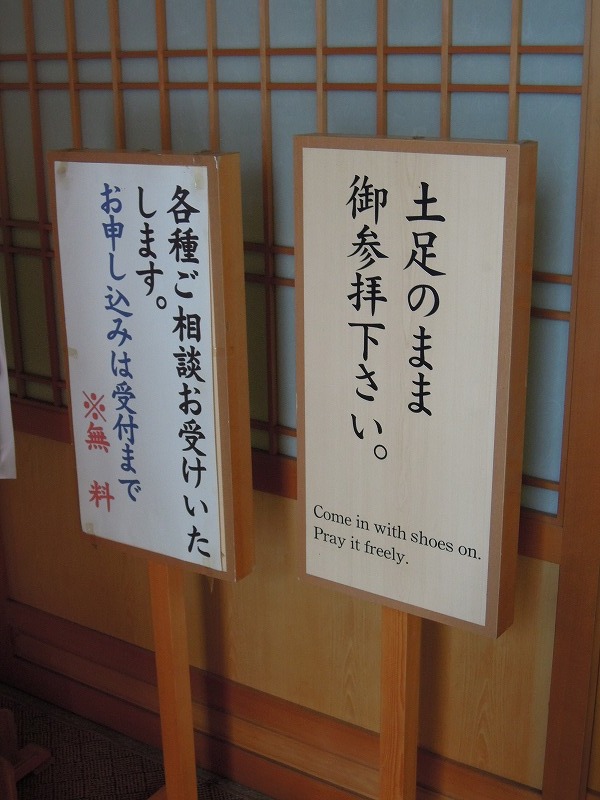 土足のまま
御参拝下さい。
Come in with shoes on.
Pray it freely.
各種ご相談お受けいた
します。
お申し込みは受付まで
※無料